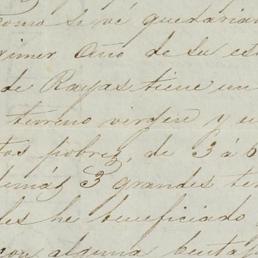 como si vé quedarian
rimer año de su es
de Rayas tiene un
terreno virgen y u
tos pobres, de 3 á 6
demás 3 grandes te
les he beneficiado
con alguna ventaj